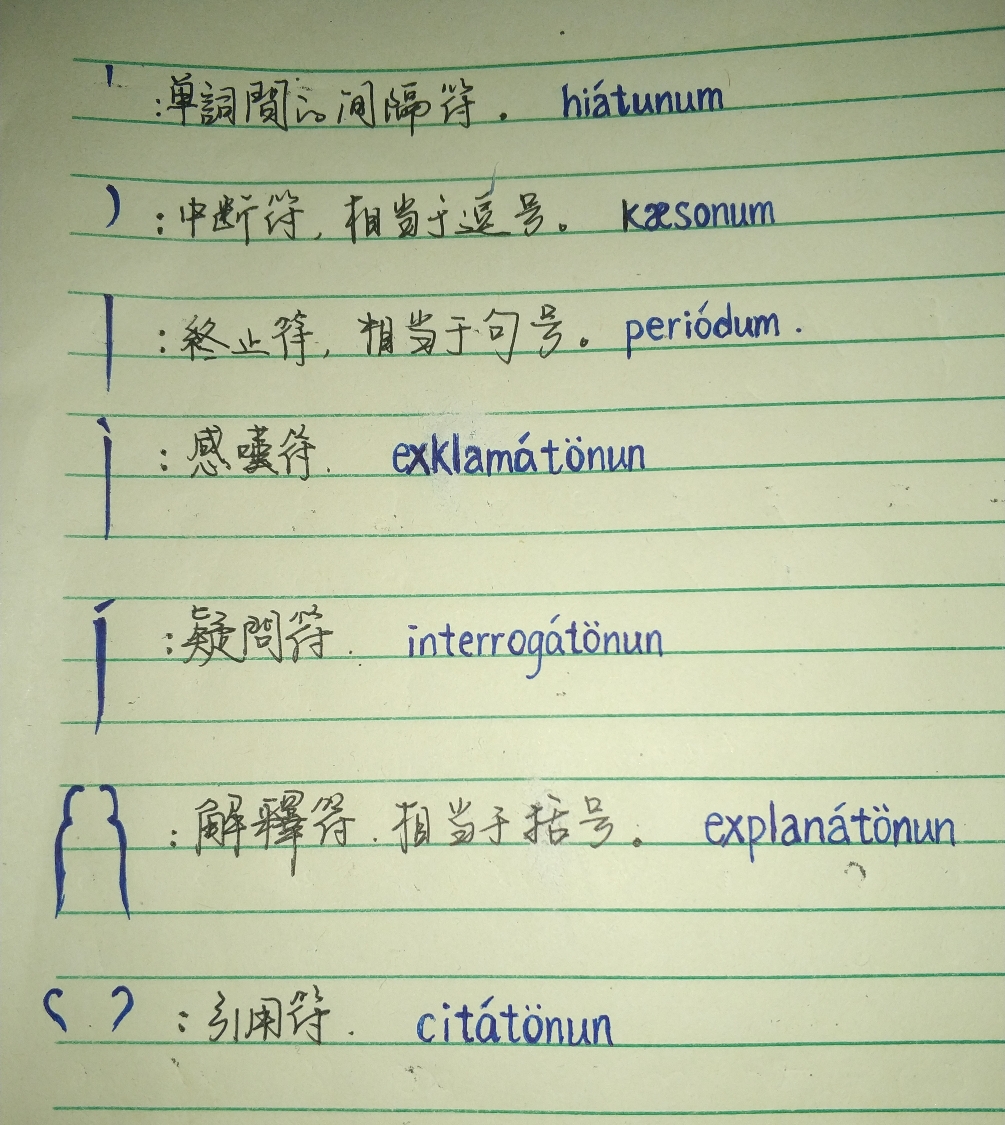 ' :单詞間的间隔符. hiátunum
) :中断符, 相当于逗号。 kæsonum
| :終止符, 相当于句号。 periódum.
:感嘆符. exklamátönun
:疑問符. interrogátönun
:解釋符. 相当于括号。 explanátönun
:引用符. citátönun